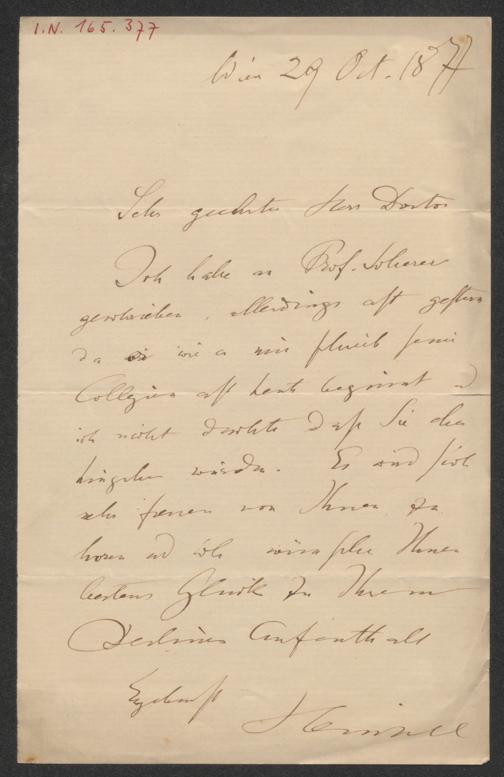 I.N. 165.377
Wien 29 Oct. 1877
Sehr geehrter Herr Doctor
Ich habe an Prof. Scherer
geschrieben, allerdings erst gestern
da wie er mir schrieb seine
Collegien erst heute beginnen und
ich nicht dachte daß Sie eher
hingehen würden. Es wird sich
sehr freuen von Ihnen zu
hören und ich wünsche Ihnen
bestens Glück zu Ihrem
Berliner Aufenthalt
Ergebenst
Heinzel